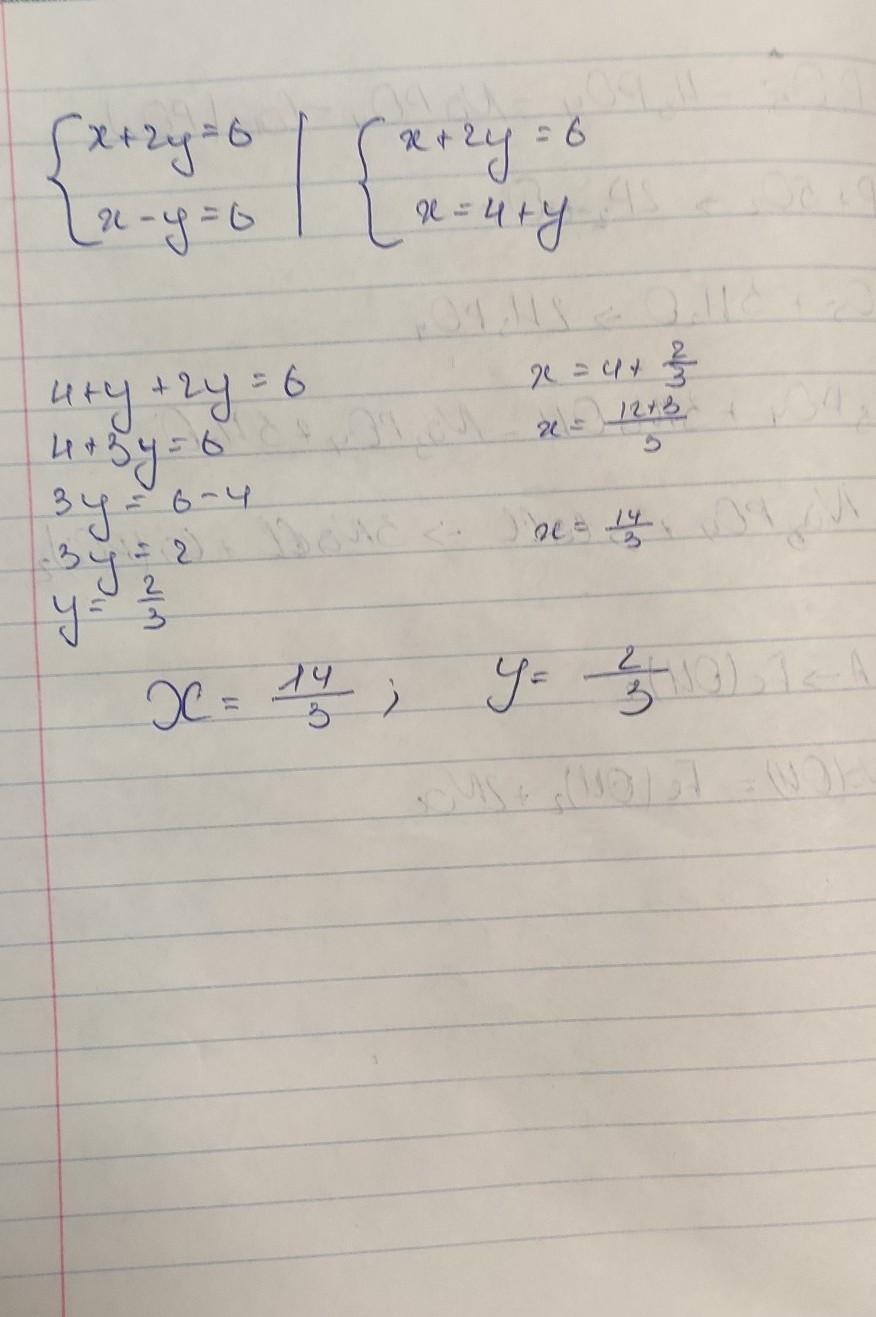 { x+2y=6 | { x+2y=6
{ x-y=6 | { x=4+y
4+y+2y=6
4+3y=6
3y=6-4
3y=2
y=2/3
x=4+2/3
x=(12+3)/3
x=14/3
x=14/3; y=2/3